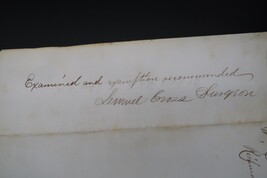 Examined and exemption recommended
Samuel Cross Surgeon